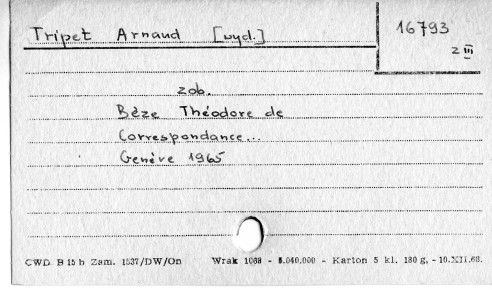 Tripet Arnaud [wyd.]
16793
2 III
zob.
Bèze Théodore de
Correspondance...
Genève 1965
CWD B 15 b Zam. 1537/DW/On Wrak 1088 - 5.040.000 - Karton 5 kl. 180 g. - 10.XII.68.